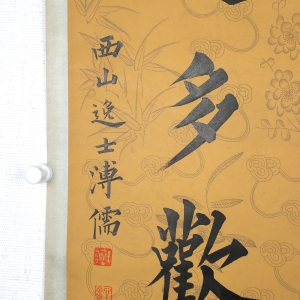 多歡
西山逸士溥儒